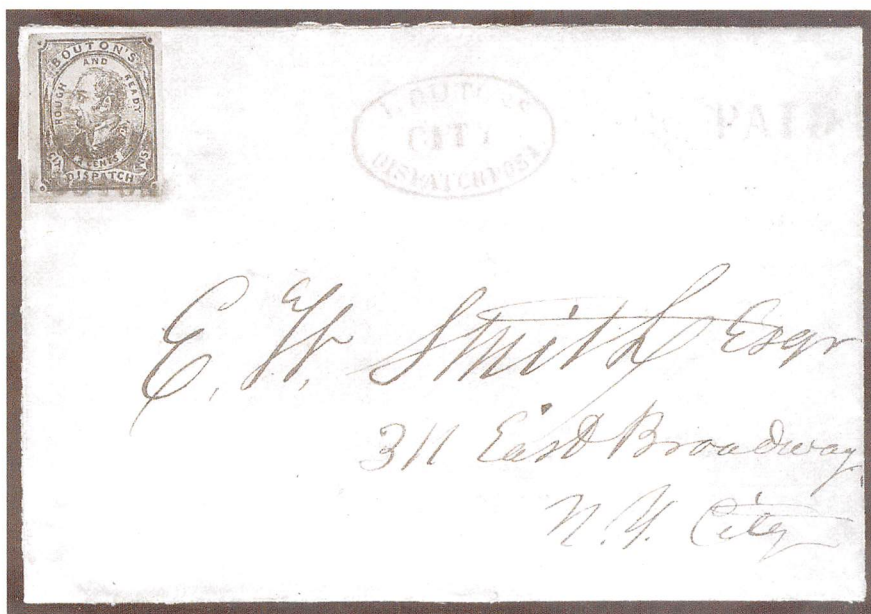 BOUTON'S
ROUGH AND READY
2 CENTS
CITY DISPATCH POST
CITY
DISPATCH POST
PAID
E. W. Smith Esqr
311 East Broadway
N. Y. City